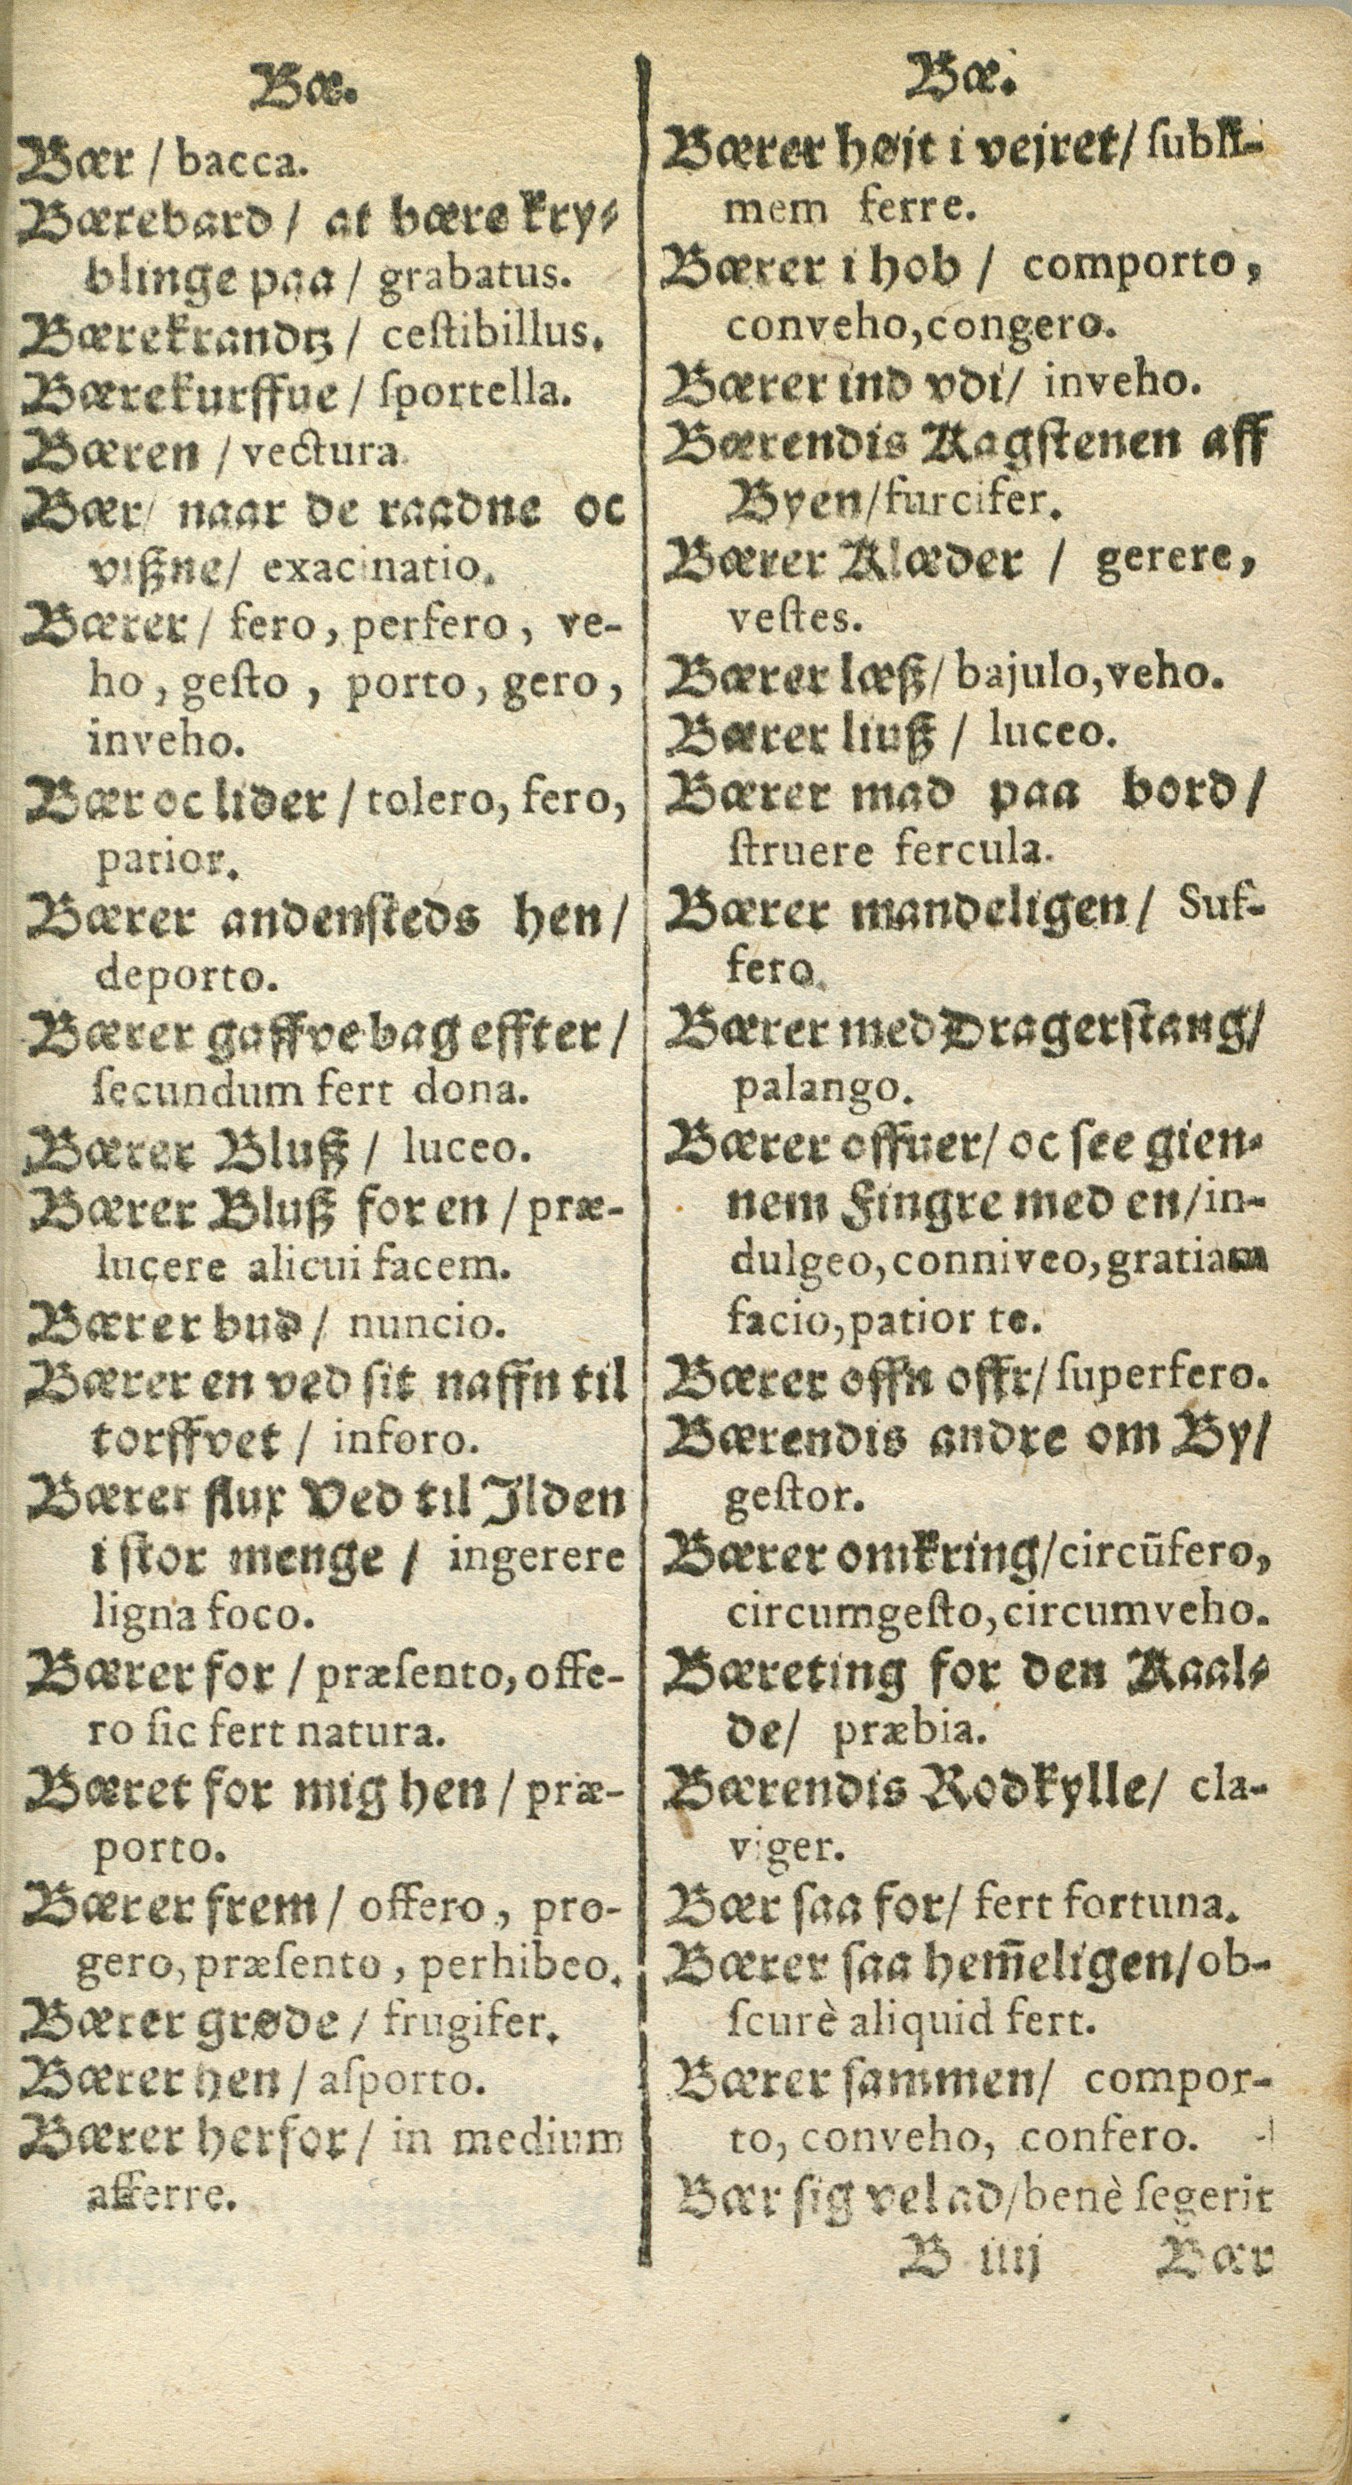 Bæ.
Bær / bacca.
Bærebard / at bære kry⸗
blinge paa / grabatus.
Bærekrandtz / ceſtibillus.
Bærekurffue / ſportella.
Bæren / vectura.
Bær / naar de raadne oc
viſzne / exacinatio.
Bærer / fero, perfero, ve-
ho, geſto, porto, gero,
inveho.
Bær oc lider / tolero, fero,
patior.
Bærer andenſteds hen /
deporto.
Bærer gaffve bag effter /
ſecundum fert dona.
Bærer Bluſz / luceo.
Bærer Bluſz for en / præ-
lucere alicui facem.
Bærer bud / nuncio.
Bærer en ved ſit naffn til
torffvet / inforo.
Bærer flux Ved til Jlden
i ſtor menge / ingerere
ligna foco.
Bærer for / præſento, offe-
ro ſic fert natura.
Bæret for mig hen / præ-
porto.
Bærer frem / offero, pro-
gero, præſento, perhibeo.
Bærer grøde / frugifer.
Bærer hen / aſporto.
Bærer herfor / in medium
afferre.
Bæ.
Bærer højt i vejret / ſubli-
mem ferre.
Bærer i hob / comporto,
conveho, congero.
Bærer ind vdi / inveho.
Bærendis Kagſtenen aff
Byen / furcifer.
Bærer Klæder / gerere,
veſtes.
Bærer læſz / bajulo, veho.
Bærer liuſz / luceo.
Bærer mad paa bord /
ſtruere fercula.
Bærer mandeligen / Suf-
fero.
Bærer med Dragerſtang /
palango.
Bærer offuer / oc ſee gien⸗
nem Fingre med en / in-
dulgeo, conniveo, gratiam
facio, patior te.
Bærer offn offr / ſuperfero.
Bærendis andre om By /
geſtor.
Bærer omkring / circũfero,
circumgeſto, circumveho.
Bæreting for den Kaal⸗
de / præbia.
Bærendis Rodkylle / cla-
viger.
Bær ſaa for / fert fortuna.
Bærer ſaa hem̄eligen / ob-
ſcurè aliquid fert.
Bærer ſammen / compor-
to, conveho, confero.
Bær ſig vel ad / benè ſegerit
B iiij Bær